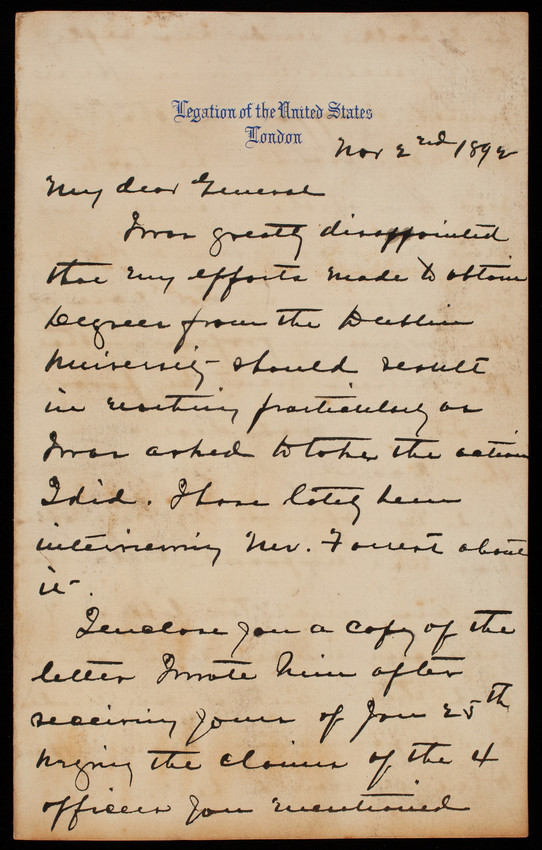 Legation of the United States
London
Nov 2nd 1892
My dear General
I was greatly disappointed
that my efforts made to obtain
Degrees from the Dublin
University should result
in nothing particularly as
I was asked to take the action
I did. I have lately been
interviewing Mr. Forrest about
it.
I enclose you a copy of the
letter I wrote him after
receiving yours of Jan 25th
urging the claims of the 4
officers you mentioned